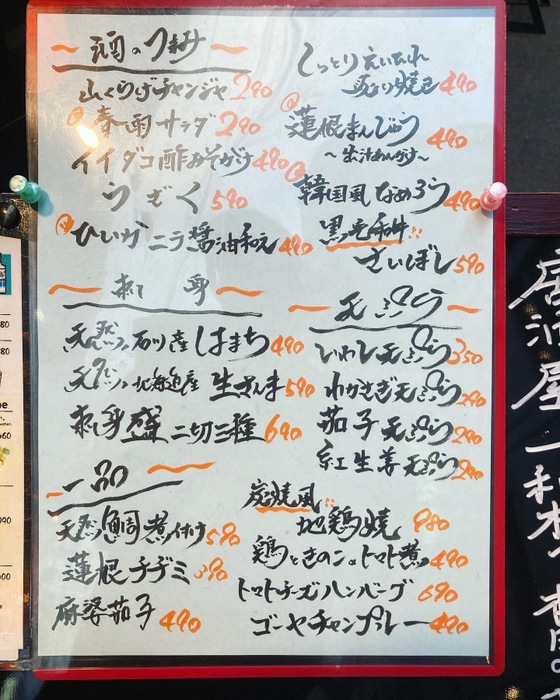 酒のつまみ
山くらげチャンジャ 290
春雨サラダ 290
イイダコ酢みそがけ 490
うざく 590
ひいかニラ醤油和え 490
刺身
天然 石川産はまち 490
天然 北海道産 生さんま 590
刺身盛 二切三種 690
一品
天然鯛煮付け 590
蓮根チヂミ
麻婆茄子 490
しっとり
焼き 490
蓮根まんじゅう 490
〜出汁あんかけ〜
韓国風なめろう 490
黒毛和牛!!
さいぼし 590
天ぷら
いわし天ぷら 350
わかさぎ天ぷら 290
茄子天ぷら 290
紅生姜天ぷら 290
炭焼風!!
地鶏焼 980
鶏ときのこのトマト煮 490
トマトチーズハンバーグ 690
ゴーヤチャンプルー 490